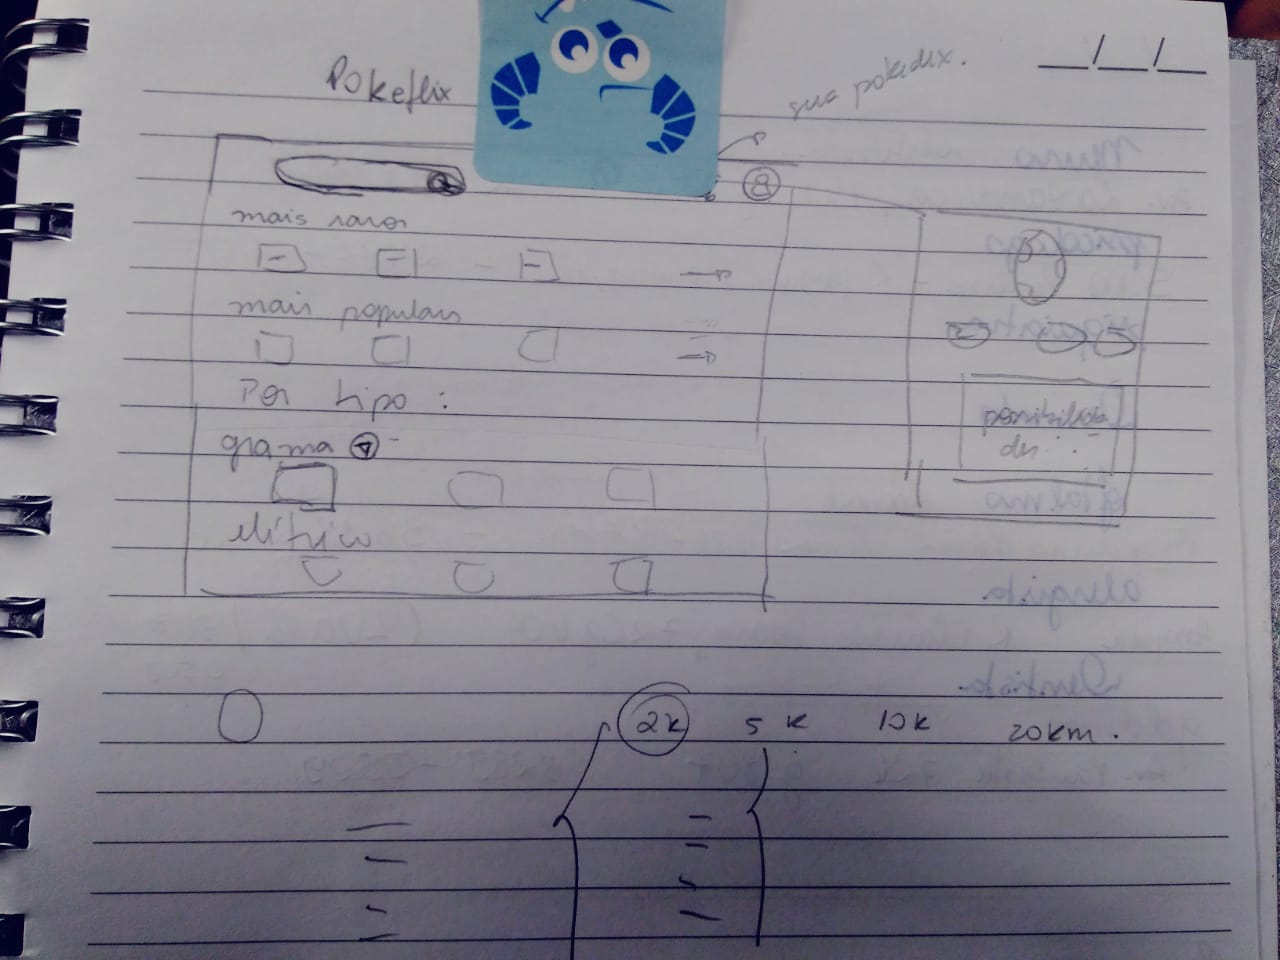 Pokeflix
sua pokedex.
__/__/__
8
mais raros
mais populars
Por tipo:
grama
elétrico
possibilida
des...
2k 5k 10k 20km.